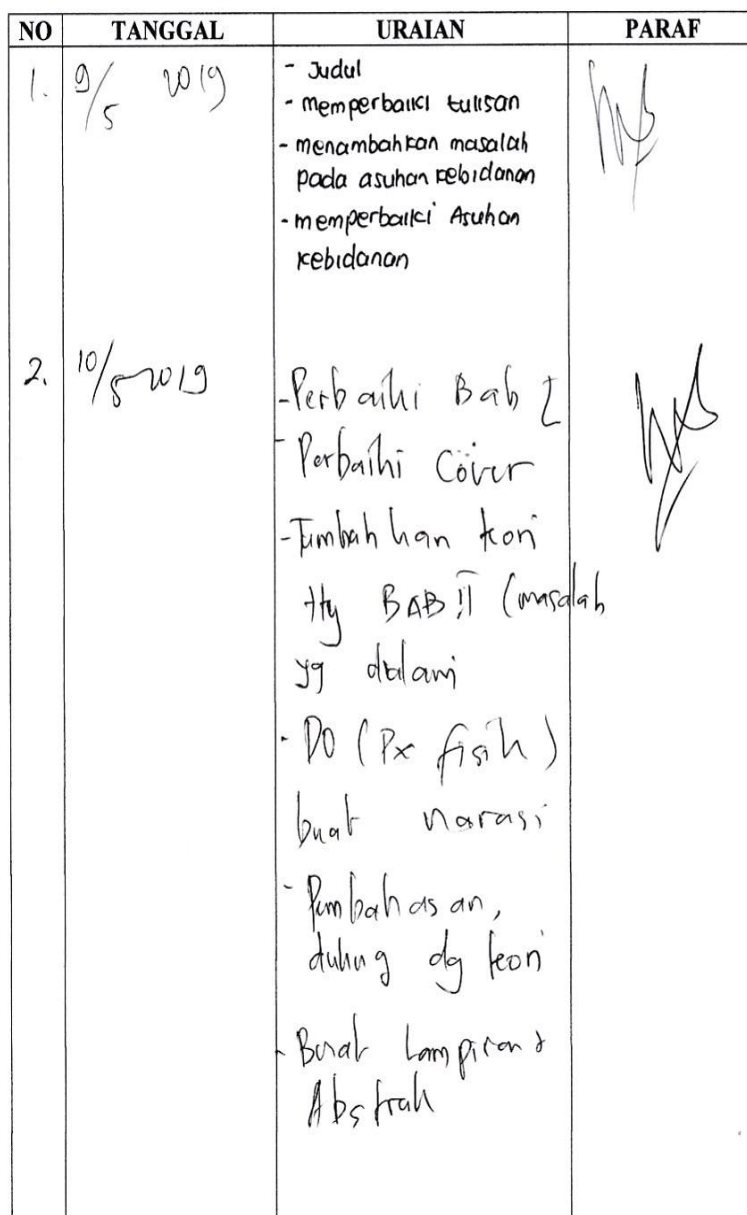 NO TANGGAL URAIAN PARAF
1. 9/5 2019 - Judul
- memperbaiki tulisan
- menambahkan masalah
pada asuhan kebidanan
- memperbaiki Asuhan
kebidanan
2. 10/5 2019 - Perbaiki Bab I
- Perbaiki Cover
- Tambahkan teori
ttg BAB II (masalah
yg dalami
- DO (Px fisik)
buat narasi
- Pembahasan,
dukung dg teori
- Buat Lampiran &
Abstrak